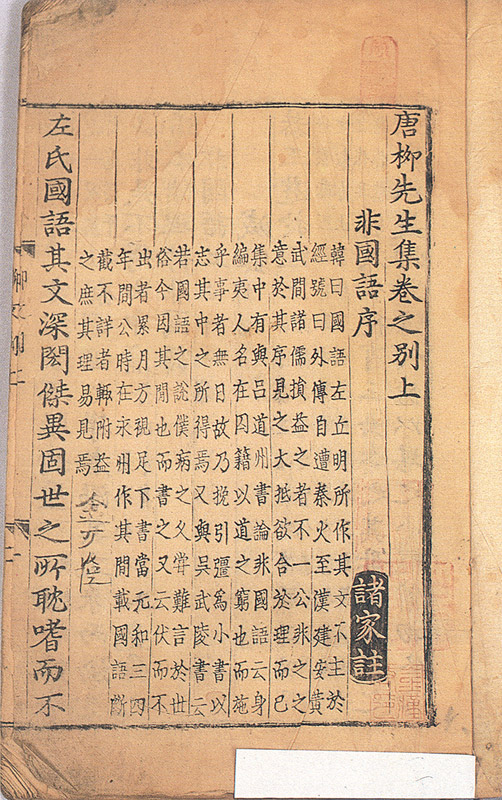 唐柳先生集卷之別上
非國語序
諸家註
韓曰國語左丘明所作其文不主於
經號曰外傳自遭秦火至漢建安黃
武間諸儒損益之者不一公非之之
意於其序見之大抵欲合於理而已
集中有與呂道州書論非國語云身
編夷人名在囚籍以道之窮也而施
乎事者無日故乃挽引彊爲小書以
志其中之所得焉又與吳武陵書云
若國語之說僕病之久甞難言於世
俗今因其閒也而書之又云伏而不
出者累月方視足下書當元和三四
年間公時在永州作其間載國語斷
截不詳者輒附益
之庶其理易見焉
左氏國語其文深閎傑異固世之所耽嗜而不